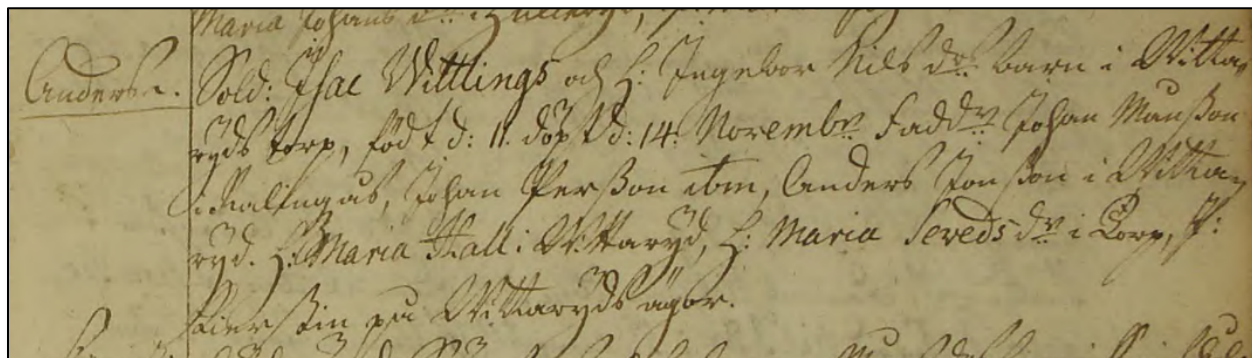 Maria Johans dr i
Anders. Sold: Isac Wittlings och H: Ingebor Nils dr barn i Witta,
ryds torp, född d: 11. döpt d: 14. Novembr. Faddr Johan Manßon
i Johan Perßon ibm, Anders Jonßon i Witta,
ryd. H: Maria Stall i Wittaryd, H: Maria Sevedsdr i Torp, P:
på Wittaryds ägor.